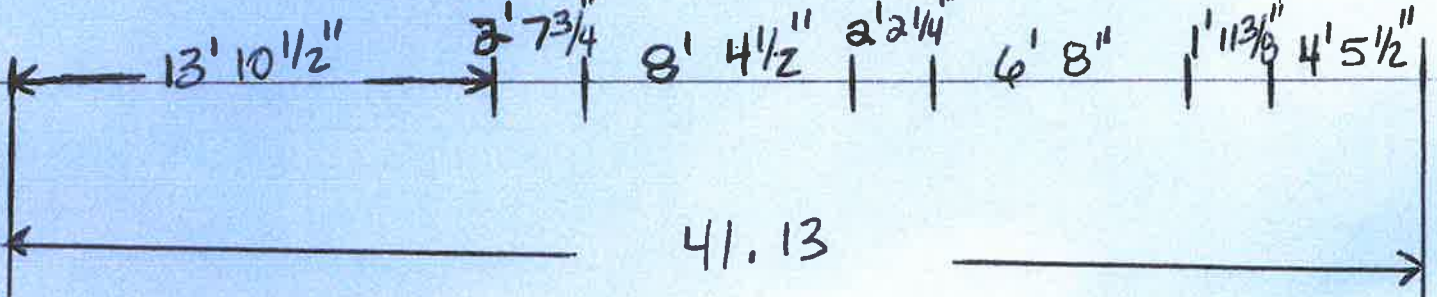 13' 10 1/2" 2' 7 3/4" 8' 4 1/2" 2' 2 1/4" 6' 8" 1' 11 3/8" 4' 5 1/2"
41.13